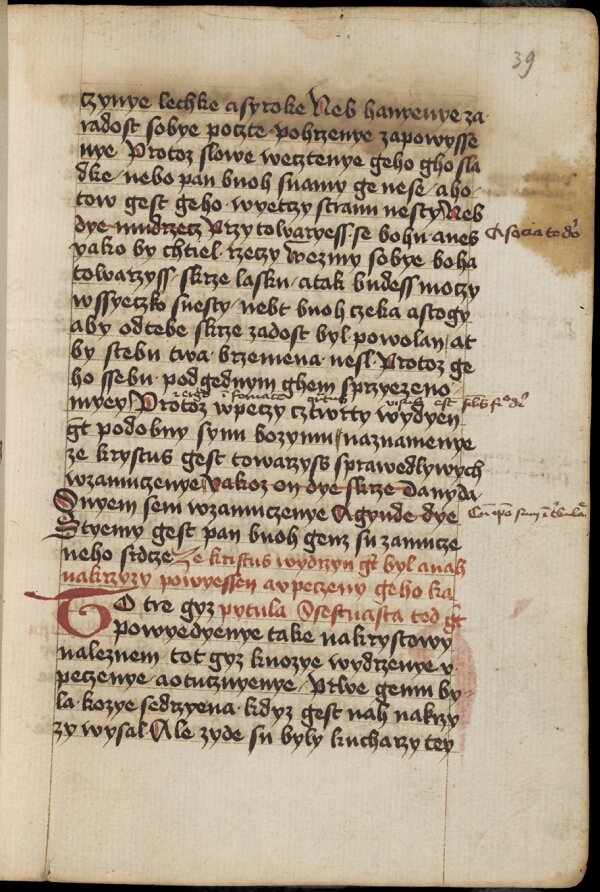 39
czynye lechke asyroke Neb hanyenye za
radost sobye poczte pohrzenye zapowysse
nye Protoz slowe wecztenye geho gho sla
dke nebo pan buoh snamy ge nese aho
tow gest geho wyetczy stranu nesty Neb
dye mudrzecz Przytowaryess se bohu aneb
Asociate deo
yako by chtiel rzeczy Wezmy sobye boha
towarzyss skrze lasku atak budess moczy
wssyeczko snesty nebt buoh czeka astogy
aby odtebe skrze zadost byl powolan at
by stebu twa brzemena nesl Protoz ge
ho ssebu podgednym ghem sprzyezeno
myey Protoz wpeczy cztwrty wydyen
gt podobny synu bozymu naznamenye
ze krystus gest towarzyss sprawedlywych
wzamuczenye yakoz on dye skrze Danyda
Snyem sem wzamuczenye Agynde dye
Styemy gest pan buoh genz su zamucze
neho srdcze Ze kristus wydrzyn gt byl anah
nakrzyzy powyessen aupeczeny geho ka
TO tre gyz pytula Ssestnasta tod gt
powyedyenye take nakrystowy
naleznem tot gyz knozye wydrzenye v
peczenye aotucznyenye Prwe gemu by
la kozye sedrzyena kdyz gest nah nakrzy
zy wysal Ale zyde su byly kucharzy tey